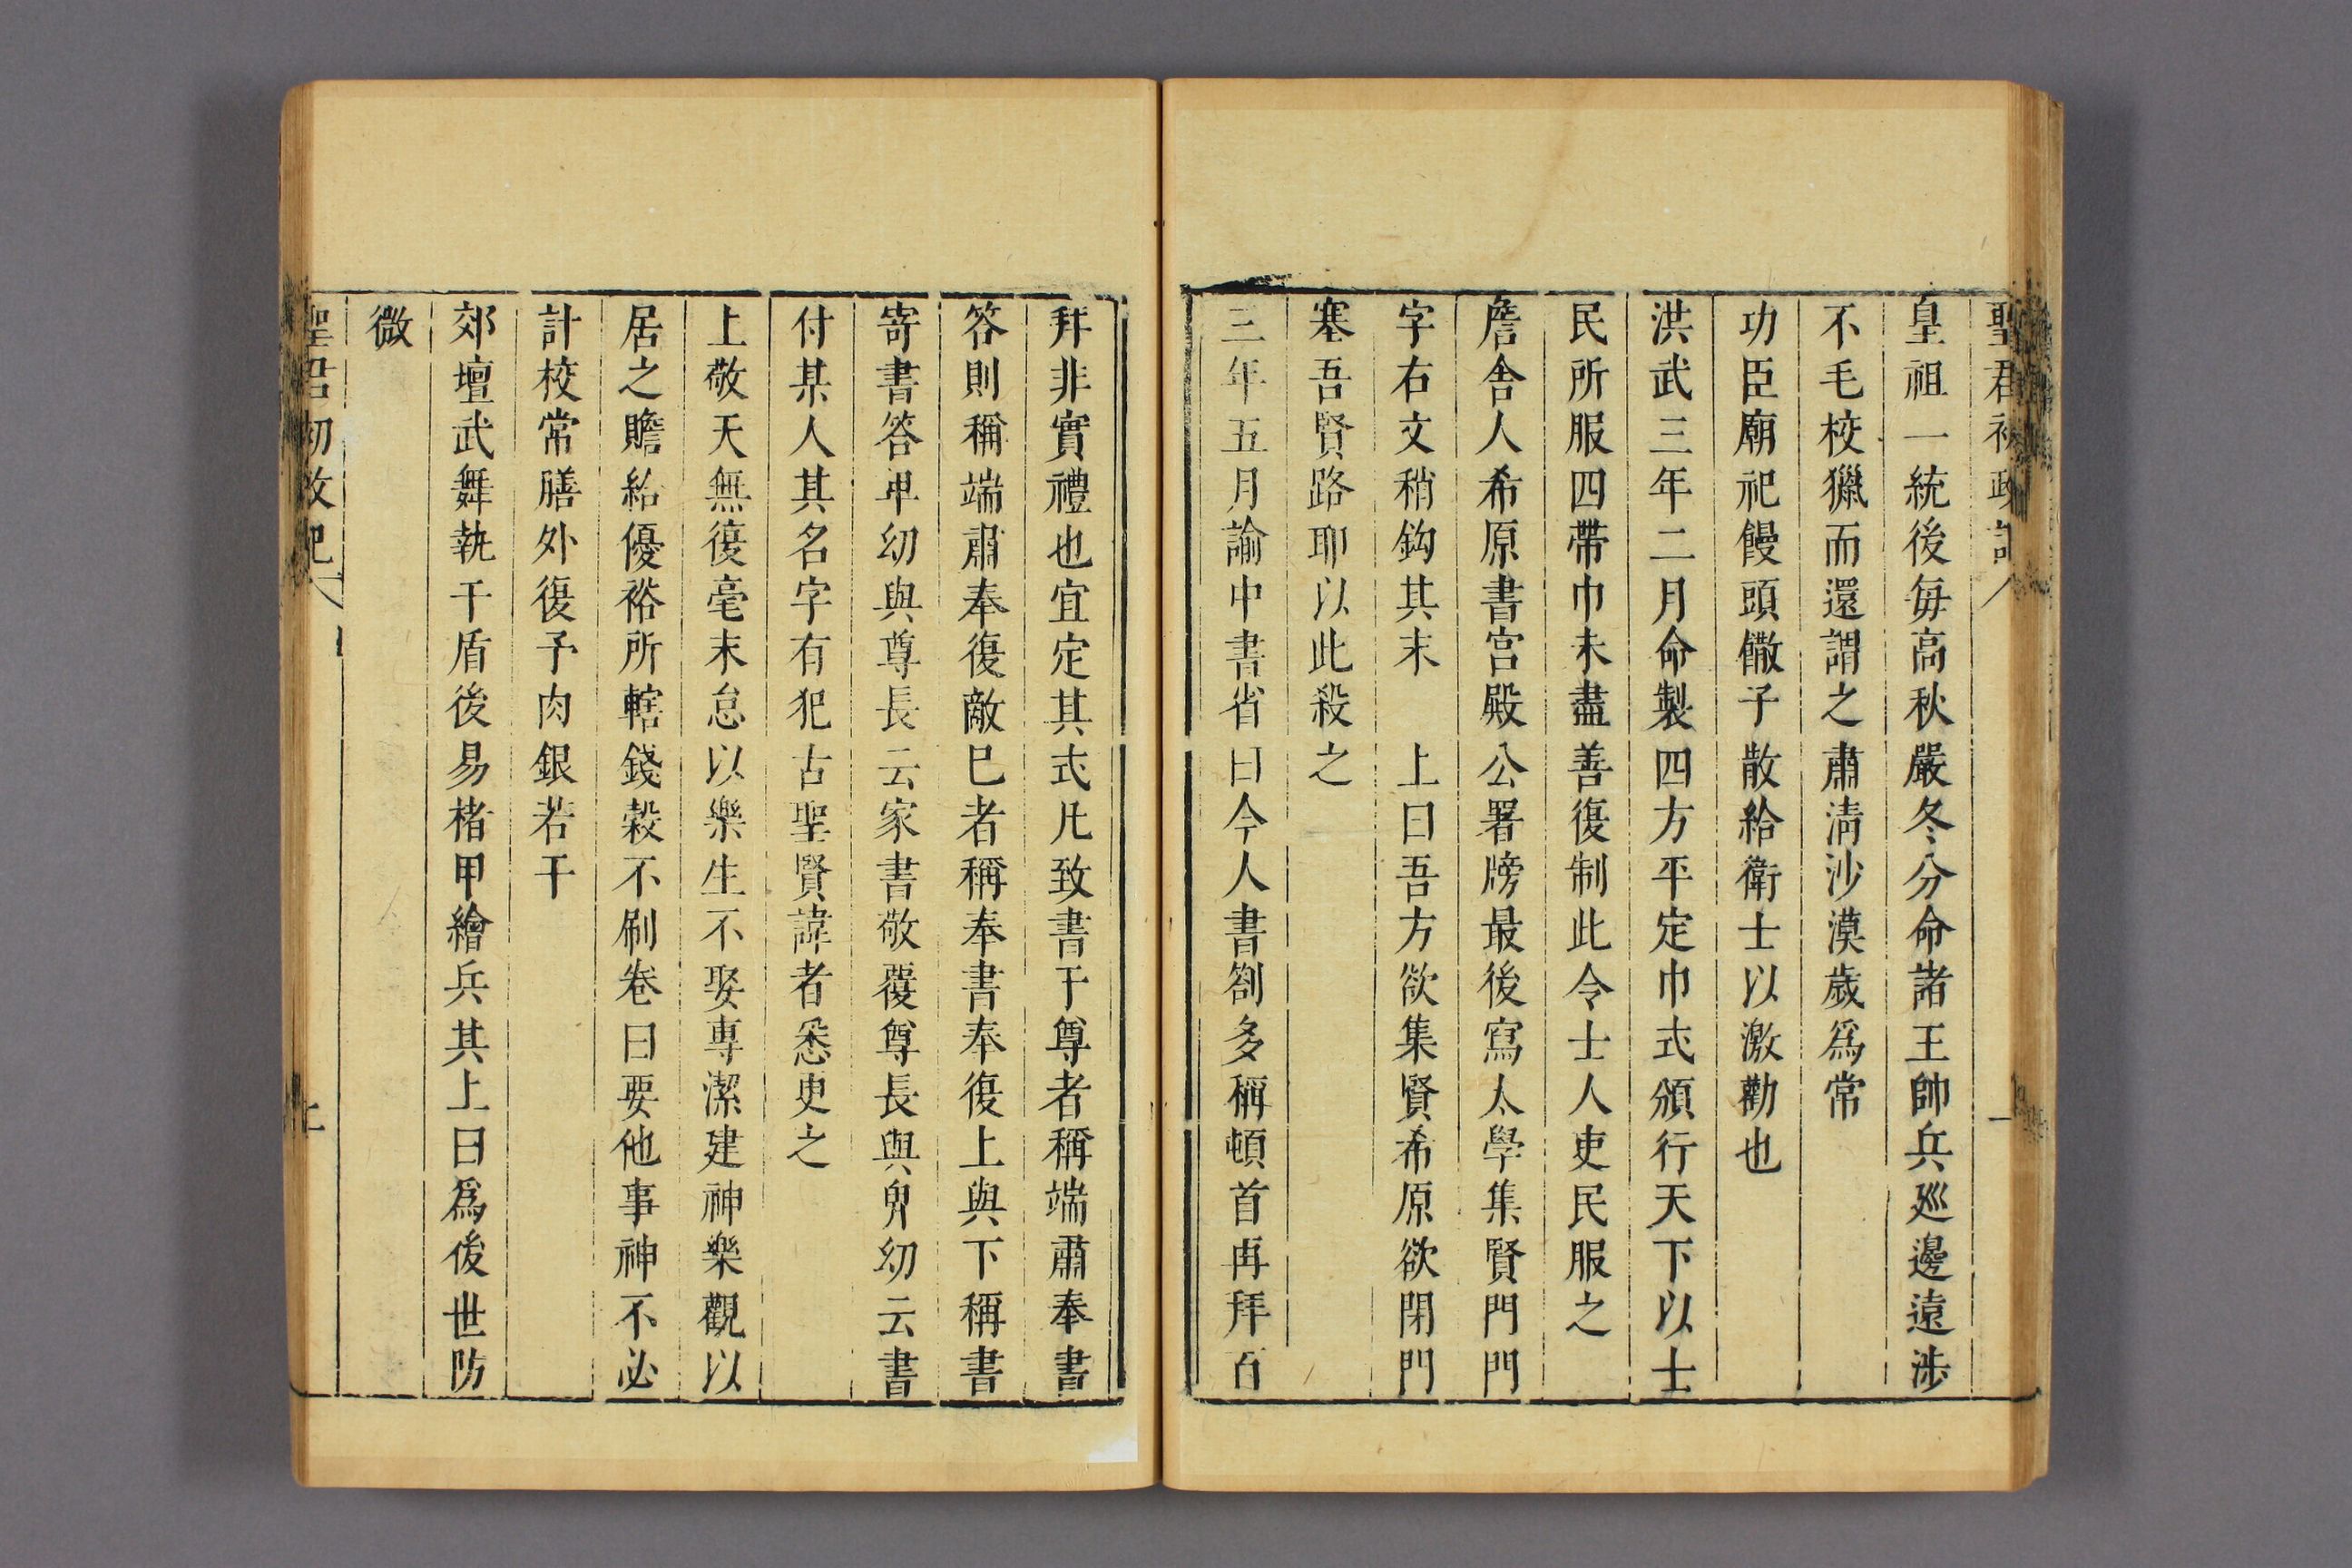 聖君初政記 一
皇祖一統後毎高秋嚴冬分命諸王帥兵廵邊遠涉
不毛校獵而還謂之肅清沙漠歲爲常
功臣廟祀饅頭饊子散給衛士以激勸也
洪武三年二月命製四方平定巾式頒行天下以士
民所服四帶巾未盡善復制此令士人吏民服之
詹舍人希原書宫殿公署牓最後寫太學集賢門門
字右文稍鈎其末　上曰吾方欲集賢希原欲閉門
塞吾賢路耶以此殺之
三年五月諭中書省曰今人書劄多稱頓首再拜百
拜非實禮也宜定其式凡致書于尊者稱端肅奉書
答則稱端肅奉復敵巳者稱奉書奉復上與下稱書
寄書答卑幼與尊長云家書敬覆尊長與㽵幼云書
付某人其名字有犯古聖賢諱者悉更之
上敬天無復毫末怠以樂生不娶專潔建神樂觀以
居之贍給優裕所轄錢榖不刷卷曰要他事神不必
計校常膳外復予肉銀若干
郊壇武舞執干盾後易楮甲繪兵其上曰爲後世防
微
聖君初政記